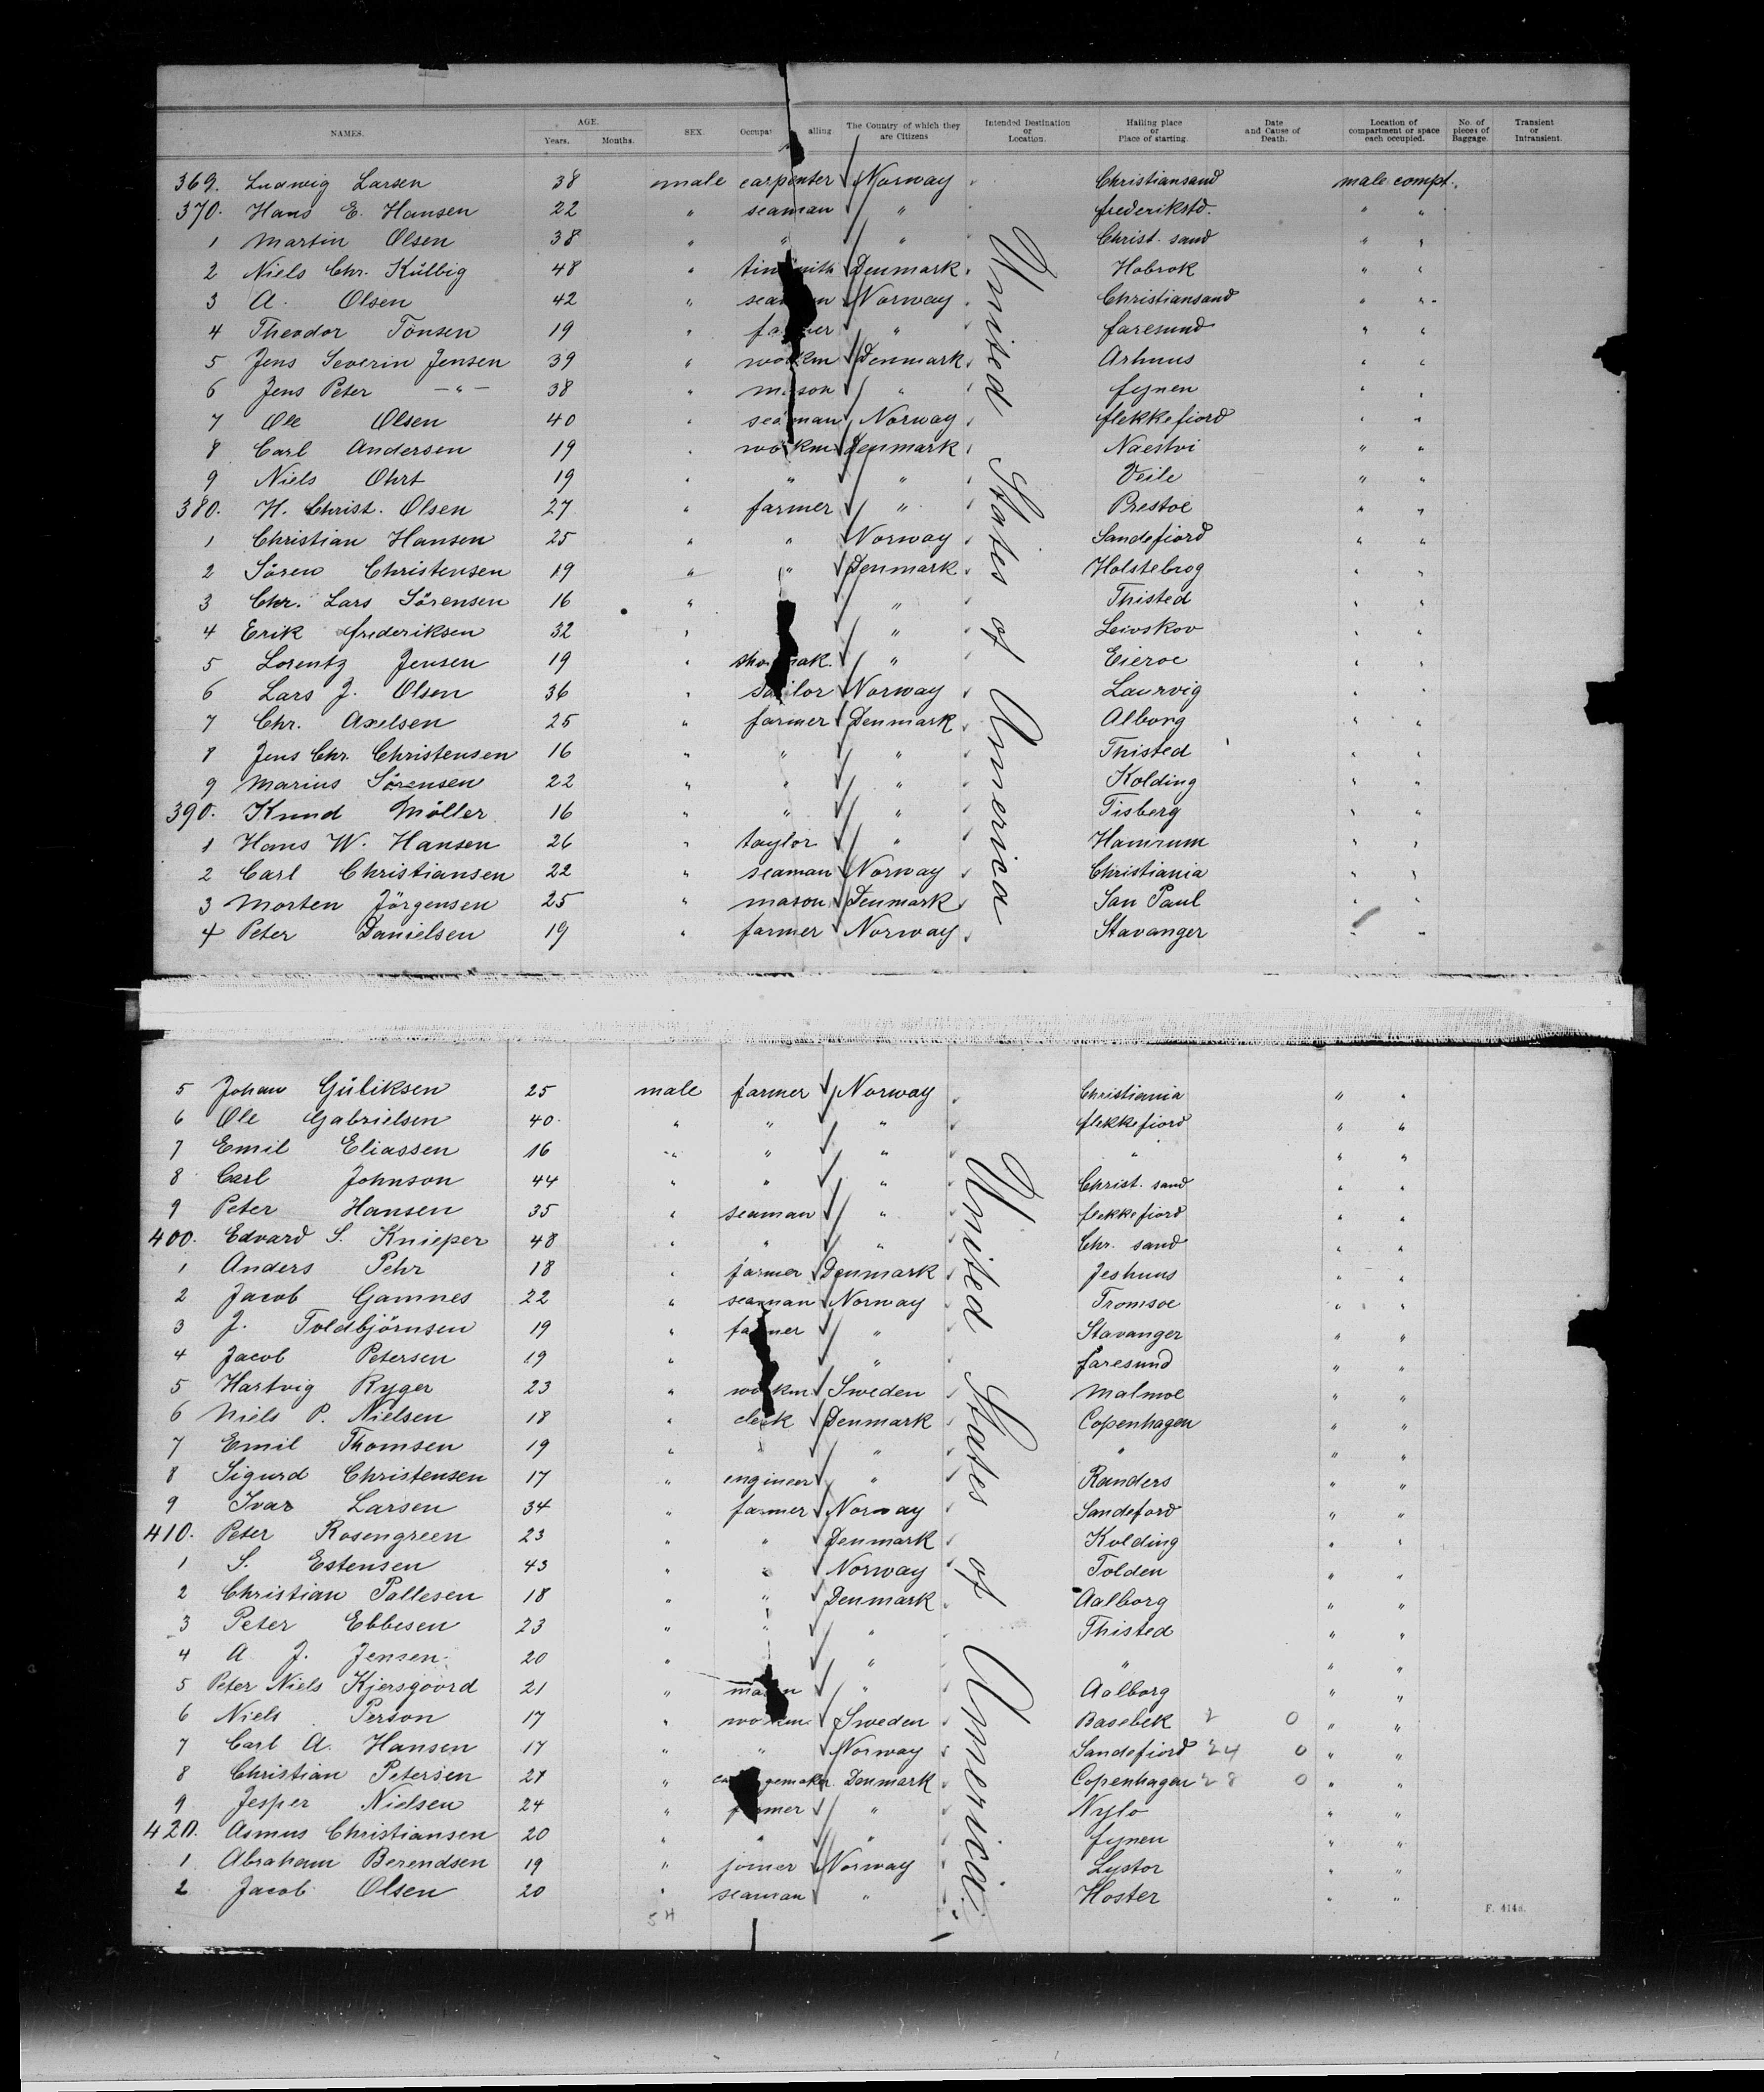 NAMES. AGE. Years. Months. SEX. Occupat alling The Country of which they are Citizens Intended Destination or Location. Hailing place or Place of starting. Date and Cause of Death. Location of compartment or space each occupied. No. of pieces of Baggage. Transient or Intransient.
369. Ludwig Larsen 38 male carpenter Norway Christiansand male compt.
370. Hans E. Hansen 22 " seaman " frederikstd. " "
1 Martin Olsen 38 " " " Christ. sand " "
2 Niels Chr. Külbig 48 " tinsmith Denmark Hobrok " "
3 A. Olsen 42 " seaman Norway Christiansand " "
4 Theodor Tönsen 19 " farmer " faresund " "
5 Jens Severin Jensen 39 " workm Denmark Arhuus " "
6 Jens Peter -"- 38 " mason " fynen " "
7 Ole Olsen 40 " seaman Norway flekkefiord " "
8 Carl Andersen 19 " workm Denmark Naestvi " "
9 Niels Ohrt 19 " " " Veile " "
380. H. Christ. Olsen 27 " farmer " Prestoe " "
1 Christian Hansen 25 " " Norway Sandefiord " "
2 Sören Christensen 19 " " Denmark Holstebrog " "
3 Chr. Lars Sörensen 16 " " Thisted " "
4 Erik frederiksen 32 " " Leivskov " "
5 Lorentz Jensen 19 " shoemak. " Eieroe " "
6 Lars J. Olsen 36 " sailor Norway Laurvig " "
7 Chr. Axelsen 25 " farmer Denmark Alborg " "
8 Jens Chr. Christensen 16 " " " Thisted " "
9 Marius Sörensen 22 " " " Kolding " "
390. Knud Möller 16 " " " Tisberg " "
1 Hans W. Hansen 26 " taylor " Hamrum " "
2 Carl Christiansen 22 " seaman Norway Christiania " "
3 Morten Jörgensen 25 " mason Denmark San Paul " "
4 Peter Danielsen 19 " farmer Norway Stavanger " "
United States of America
5 Johan Güliksen 25 male farmer Norway Christiania " "
6 Ole Gabrielsen 40 " " " flekkefiord " "
7 Emil Eliassen 16 " " " " " "
8 Carl Johnson 44 " " " Christ. sand " "
9 Peter Hansen 35 " seaman " flekkefiord " "
400. Edvard S. Knieper 48 " " " Chr. sand " "
1 Anders Pehr 18 " farmer Denmark Jeshuus " "
2 Jacob Gamnes 22 " seaman Norway Tromsoe " "
3 J. Toldbjörnsen 19 " farmer " Stavanger " "
4 Jacob Petersen 19 " " faresund " "
5 Hartvig Ryger 23 " workm Sweden Malmoe " "
6 Niels P. Nielsen 18 " clerk Denmark Copenhagen " "
7 Emil Thomsen 19 " " " " " "
8 Sigurd Christensen 17 " engineer " Randers " "
9 Ivar Larsen 34 " farmer Norway Sandeford " "
410. Peter Rosengreen 23 " " Denmark Kolding " "
1 S. Estensen 43 " " Norway Tolden " "
2 Christian Pallesen 18 " " Denmark Aalborg " "
3 Peter Ebbesen 23 " " " Thisted " "
4 A J. Jensen 20 " " " " "
5 Peter Niels Kjersgoord 21 " mason " Aalborg " "
6 Niels Person 17 " workm. Sweden Basebek 2 0 " "
7 Carl A. Hansen 17 " " Norway Sandefiord 24 0 " "
8 Christian Petersen 21 " ca gemaker Denmark Copenhagen 28 0 " "
9 Jesper Nielsen 24 " farmer " Nylo " "
420. Asmus Christiansen 20 " " " fynen " "
1 Abraham Berendsen 19 " joiner Norway Lystor " "
2 Jacob Olsen 20 " seaman " Hoster " "
United States of America
54
F. 414a.